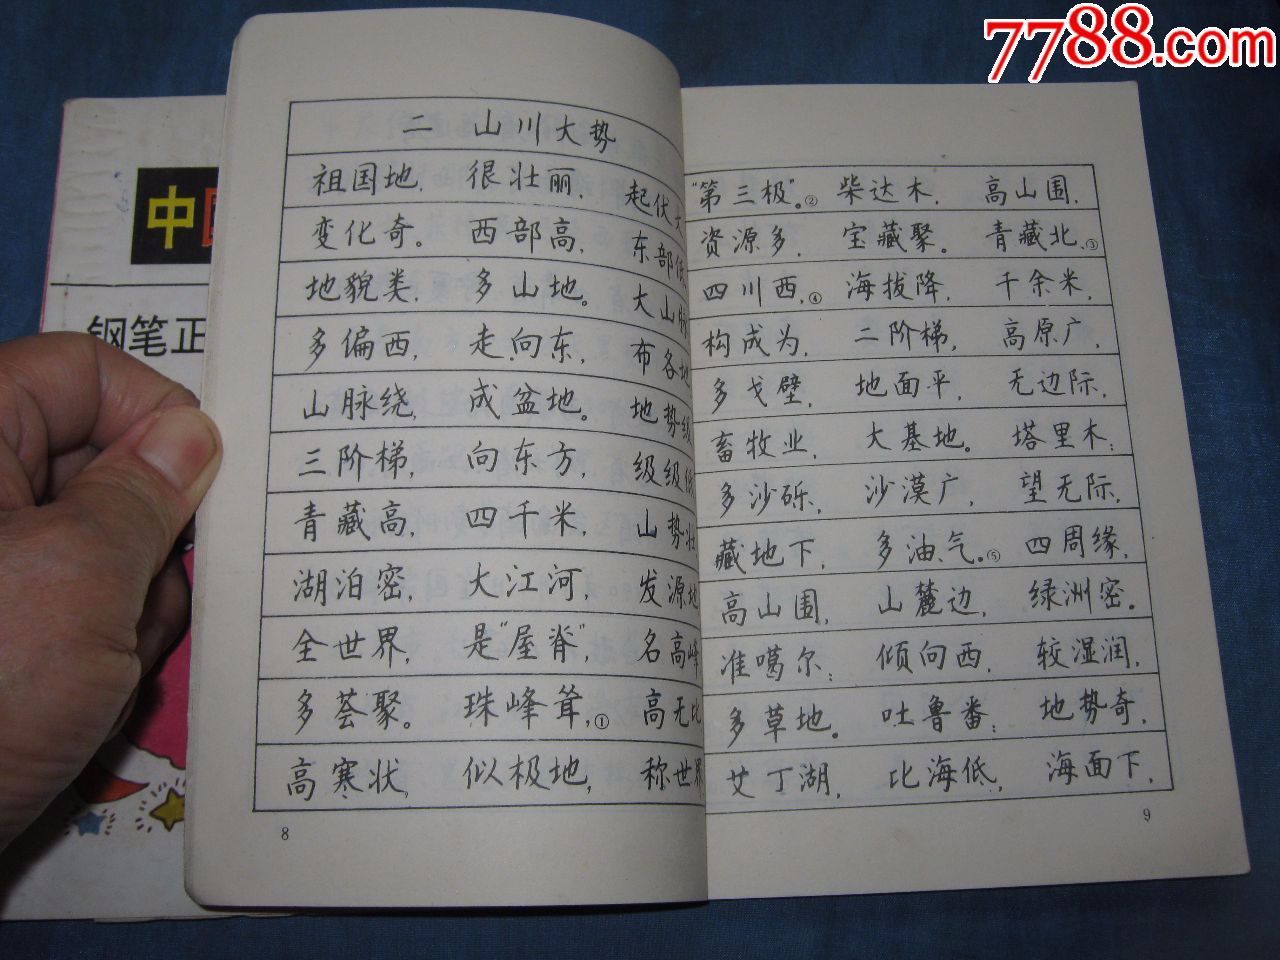 7788.com
中国
钢笔正
二 山川大势
祖国地, 很壮丽, 起伏大
变化奇。 西部高, 东部低
地貌类, 多山地。 大山脉
多偏西, 走向东, 布各地
山脉绕, 成盆地。 地势级
三阶梯, 向东方, 级级低
青藏高, 四千米, 山势壮
湖泊密, 大江河, 发源地
全世界, 是"屋脊", 名高峰
多荟聚。 珠峰耸,① 高无比
高寒状, 似极地, 称世界
8
"第三极"。② 柴达木, 高山围,
资源多, 宝藏聚。 青藏北,③
四川西,④ 海拔降, 千余米,
构成为, 二阶梯, 高原广,
多戈壁, 地面平, 无边际,
畜牧业, 大基地。 塔里木:
多沙砾, 沙漠广, 望无际,
藏地下, 多油气。⑤ 四周缘,
高山围, 山麓边, 绿洲密。
准噶尔: 倾向西, 较湿润,
多草地。 吐鲁番: 地势奇,
艾丁湖, 比海低, 海面下,
9